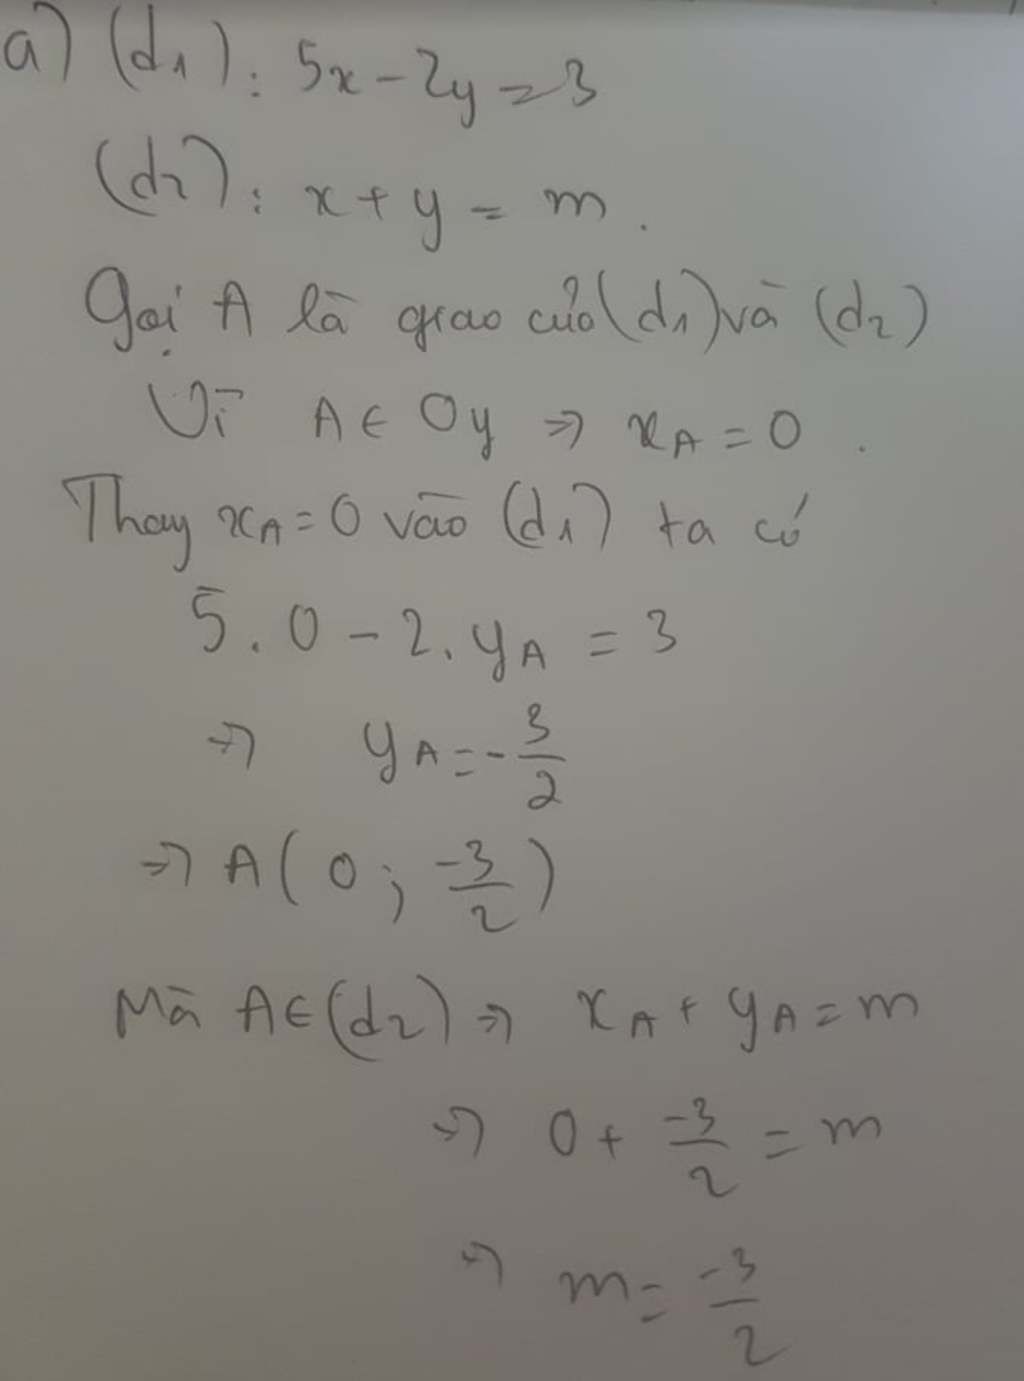 a) (d₁): 5x - 2y = 3
(d₂): x + y = m.
Gọi A là giao của (d₁) và (d₂)
Vì A ∈ Oy => x_A = 0.
Thay x_A = 0 vào (d₁) ta có
5.0 - 2.y_A = 3
=> y_A = -3/2
=> A(0; -3/2)
Mà A ∈ (d₂) => x_A + y_A = m
=> 0 + -3/2 = m
=> m = -3/2